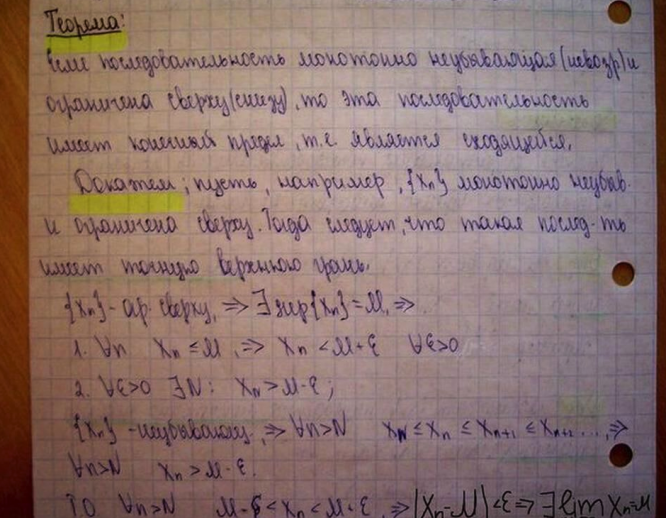 Теорема:
Если последовательность монотонно неубывающая (невозр) и
ограничена сверху (снизу), то эта последовательность
имеет конечный предел, т.е. является сходящейся.
Докажем; пусть, например, {xₙ} монотонно неубыв.
и ограничена сверху. Тогда следует, что такая послед-ть
имеет точную верхнюю грань.
{xₙ} - огр. сверху, ⇒ ∃ sup{xₙ}=M, ⇒
1. ∀n xₙ ≤ M, ⇒ xₙ < M+ε ∀ε>0
2. ∀ε>0 ∃N: x > M-ε;
{xₙ} - неубывающ. ⇒ ∀n>N x_N ≤ xₙ ≤ xₙ₊₁ ≤ xₙ₊₂ ..., ⇒
∀n>N xₙ > M-ε.
Т.О. ∀n>N M-ε < xₙ < M+ε, ⇒ |xₙ-M| < ε ⇒ ∃ lim xₙ = M